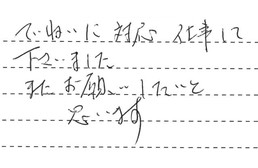 ていねいに対応 仕事して
下さいました
またお願いしたいと
思います